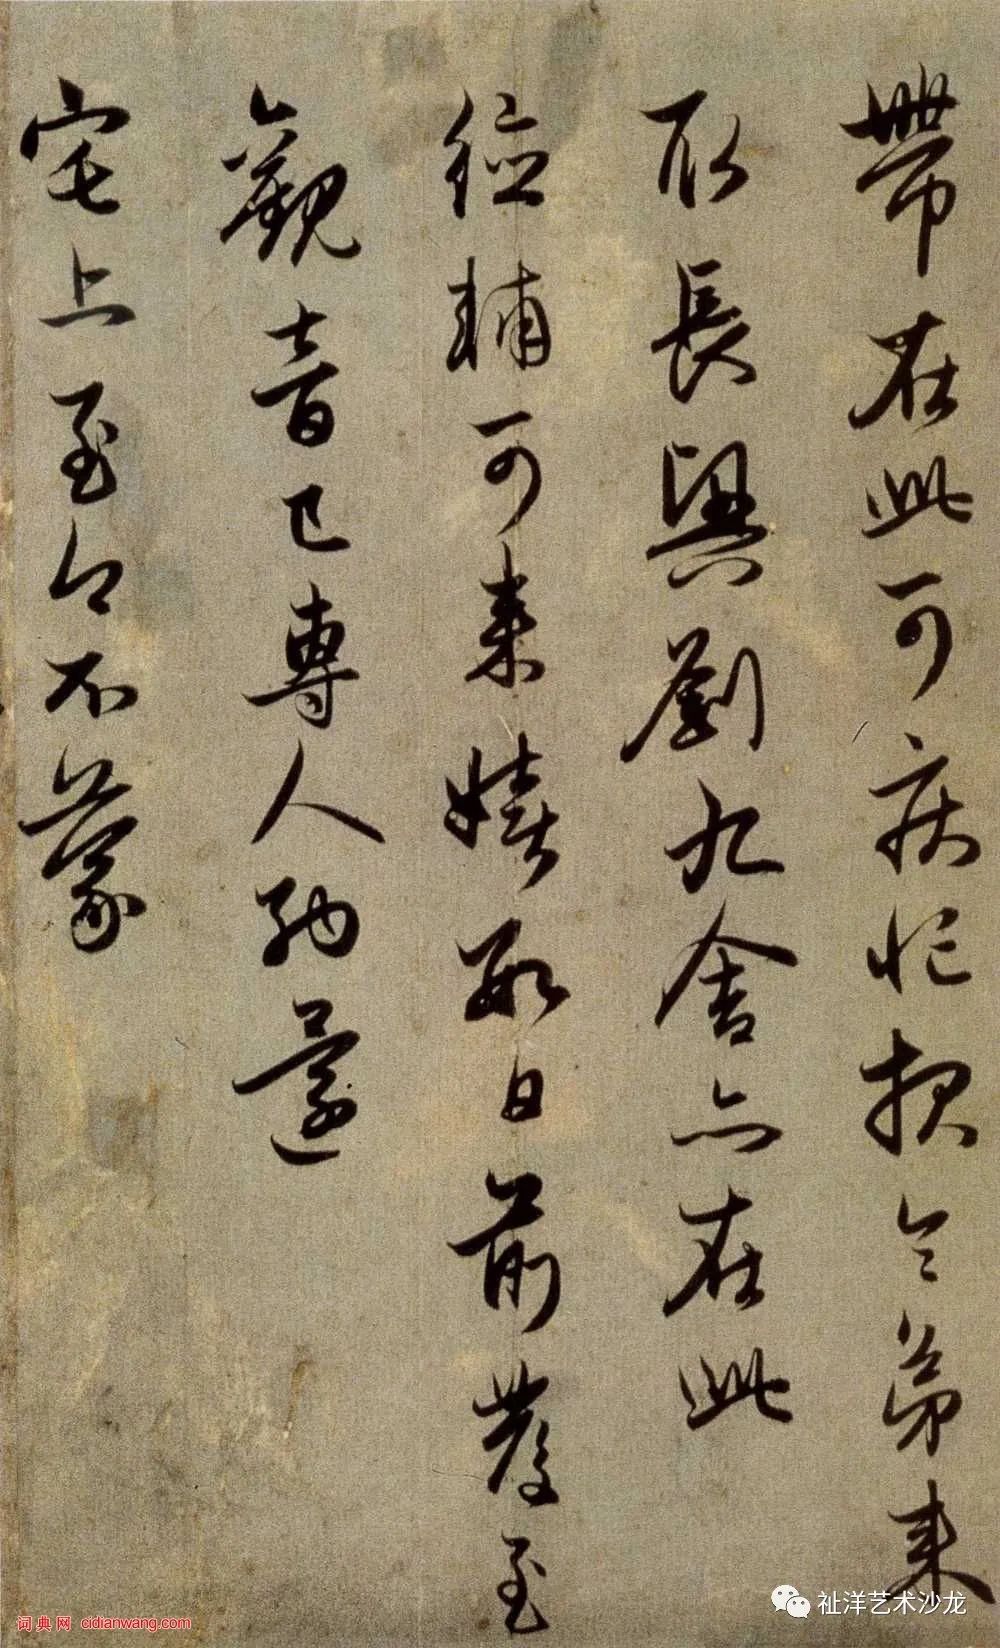 帶在此可疾忙報令弟來
取長興劉九舍亦在此
德輔可來嬉數日前發至
觀音已專人納還
宅上至今不蒙
词典网 cidianwang.com
祉洋艺术沙龙